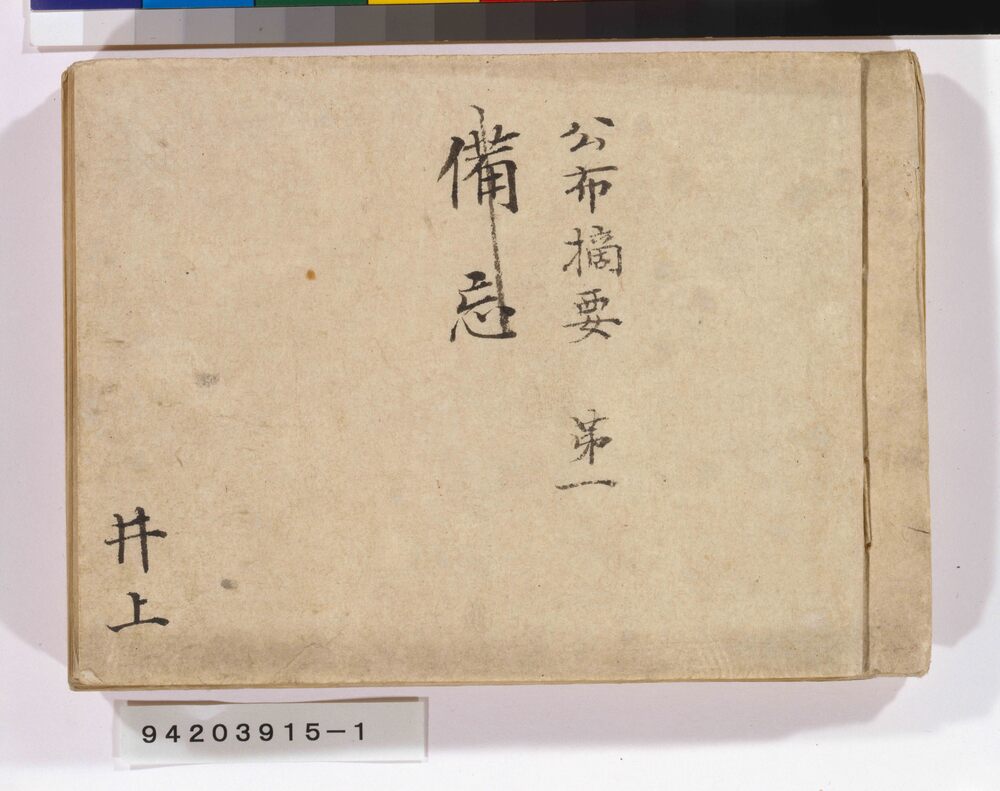 公布摘要 第一
備忘
井上
94203915-1